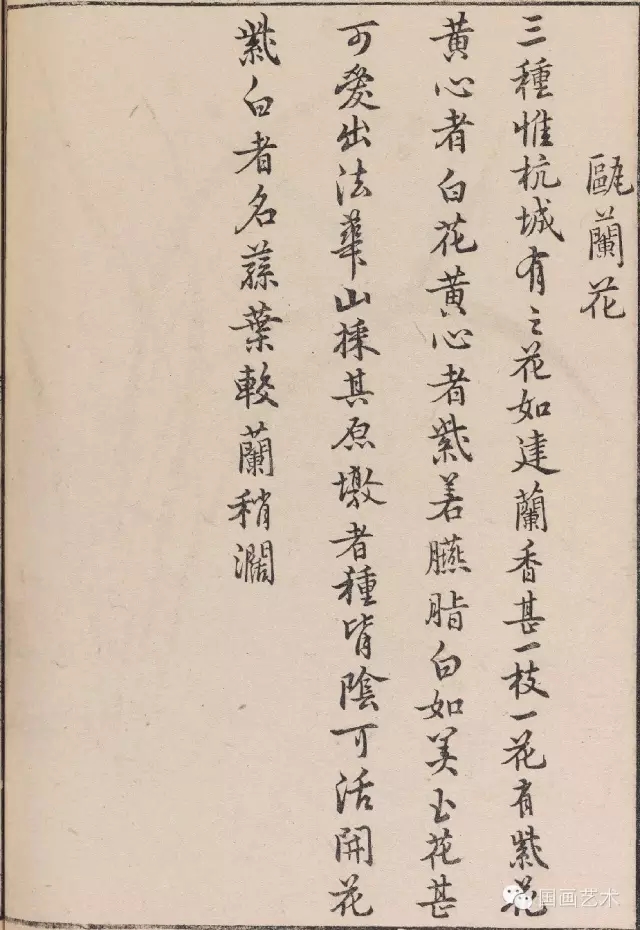 甌蘭花
三種惟杭城有之花如建蘭香甚一枝一花有紫花
黄心者白花黄心者紫若臙脂白如美玉花甚
可愛出法華山採其原墩者種背陰可活開花
紫白者名蓀葉較蘭稍濶
国画艺术